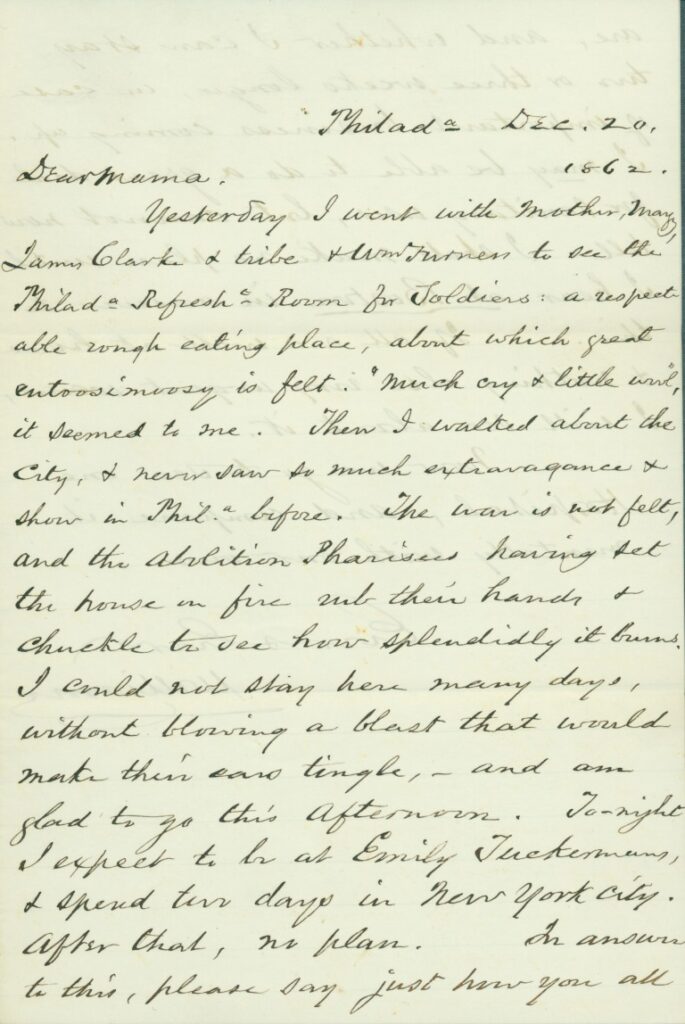 Philada Dec. 20.
1862.
Dear Mama.
Yesterday I went with Mother, Mary,
James Clarke & tribe & Wm Furness to see the
Philada Refresht Room for Soldiers: a respect-
able rough eating place, about which great
entoosimoosy is felt. "Much cry & little wool",
it seemed to me. Then I walked about the
City, & never saw so much extravagance &
show in Phil.a before. The war is not felt,
and the Abolition Pharisees having set
the house on fire rub their hands &
chuckle to see how splendidly it burns.
I could not stay here many days,
without blowing a blast that would
make their ears tingle, – and am
glad to go this Afternoon. To-night
I expect to be at Emily Tuckermans,
& spend two days in New York City.
After that, no plan. In answer
to this, please say just how you all